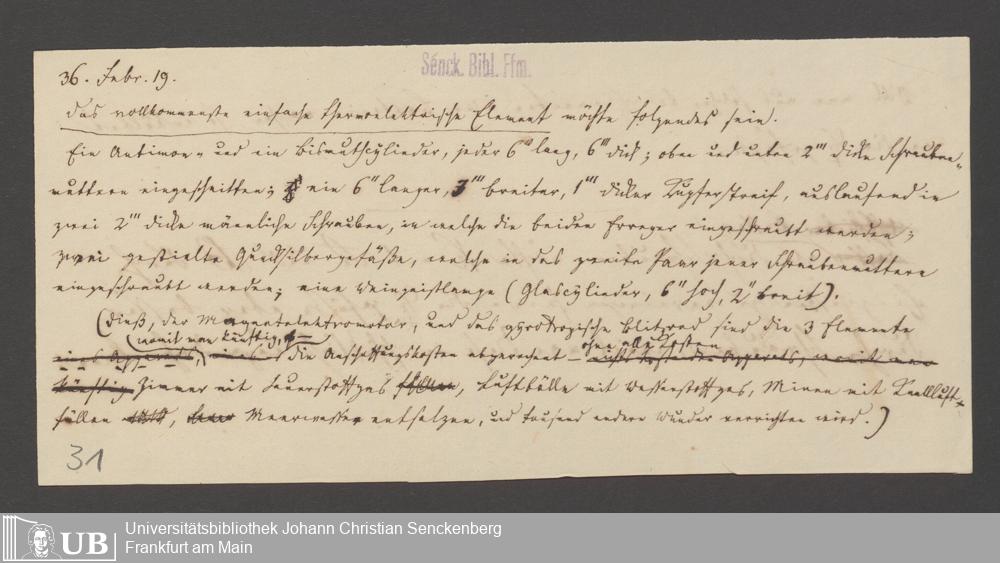 Senck. Bibl. Ffm.
36. Febr. 19.
Das vollkommenste einfache thermoelektrische Element möchte folgendes sein.
Ein Antimon- und ein Bismuthcylinder, jeder 6" lang, 6''' dick; oben und unten 2''' dicke Schrauben-
muttern eingeschnitten; ein 6" langer, 3''' breiter, 1''' dicker Kupferstreif, auslaufend in
zwei 2''' dicke männliche Schrauben, in welche die beiden Erreger eingeschraubt werden;
zwei gestielte Quecksilbergefäße, welche in das zweite Paar jener Schraubenmuttern
eingeschraubt werden; eine Weingeistlampe (Glascylinder, 6" hoch, 2" breit).
(Dieß, der Magnetelektromotor, und das gyrotropische Blitzrad sind die 3 Elemente
(womit man künftig, ohne alle Kosten
eines Apparats, die Anschaffungskosten abgerechnet –
künftig Zimmer mit Sauerstoffgas füllen, Luftbälle mit Wasserstoffgas, Minen mit Knallluft
füllen, Meerwasser entsalzen, und tausend andere Wunder verrichten wird.)
31
UB
Universitätsbibliothek Johann Christian Senckenberg
Frankfurt am Main